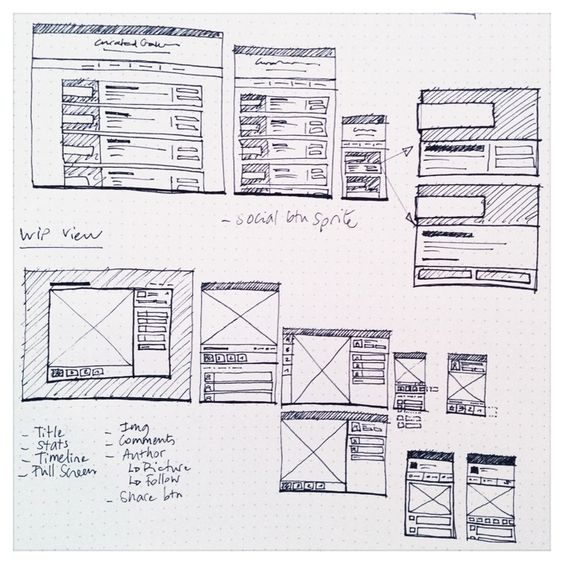 Curated
- social btn sprite
WIP View
- Title
- Stats
- Timeline
- Full Screen
- Img
- Comments
- Author
↳ Picture
↳ Follow
- Share btn